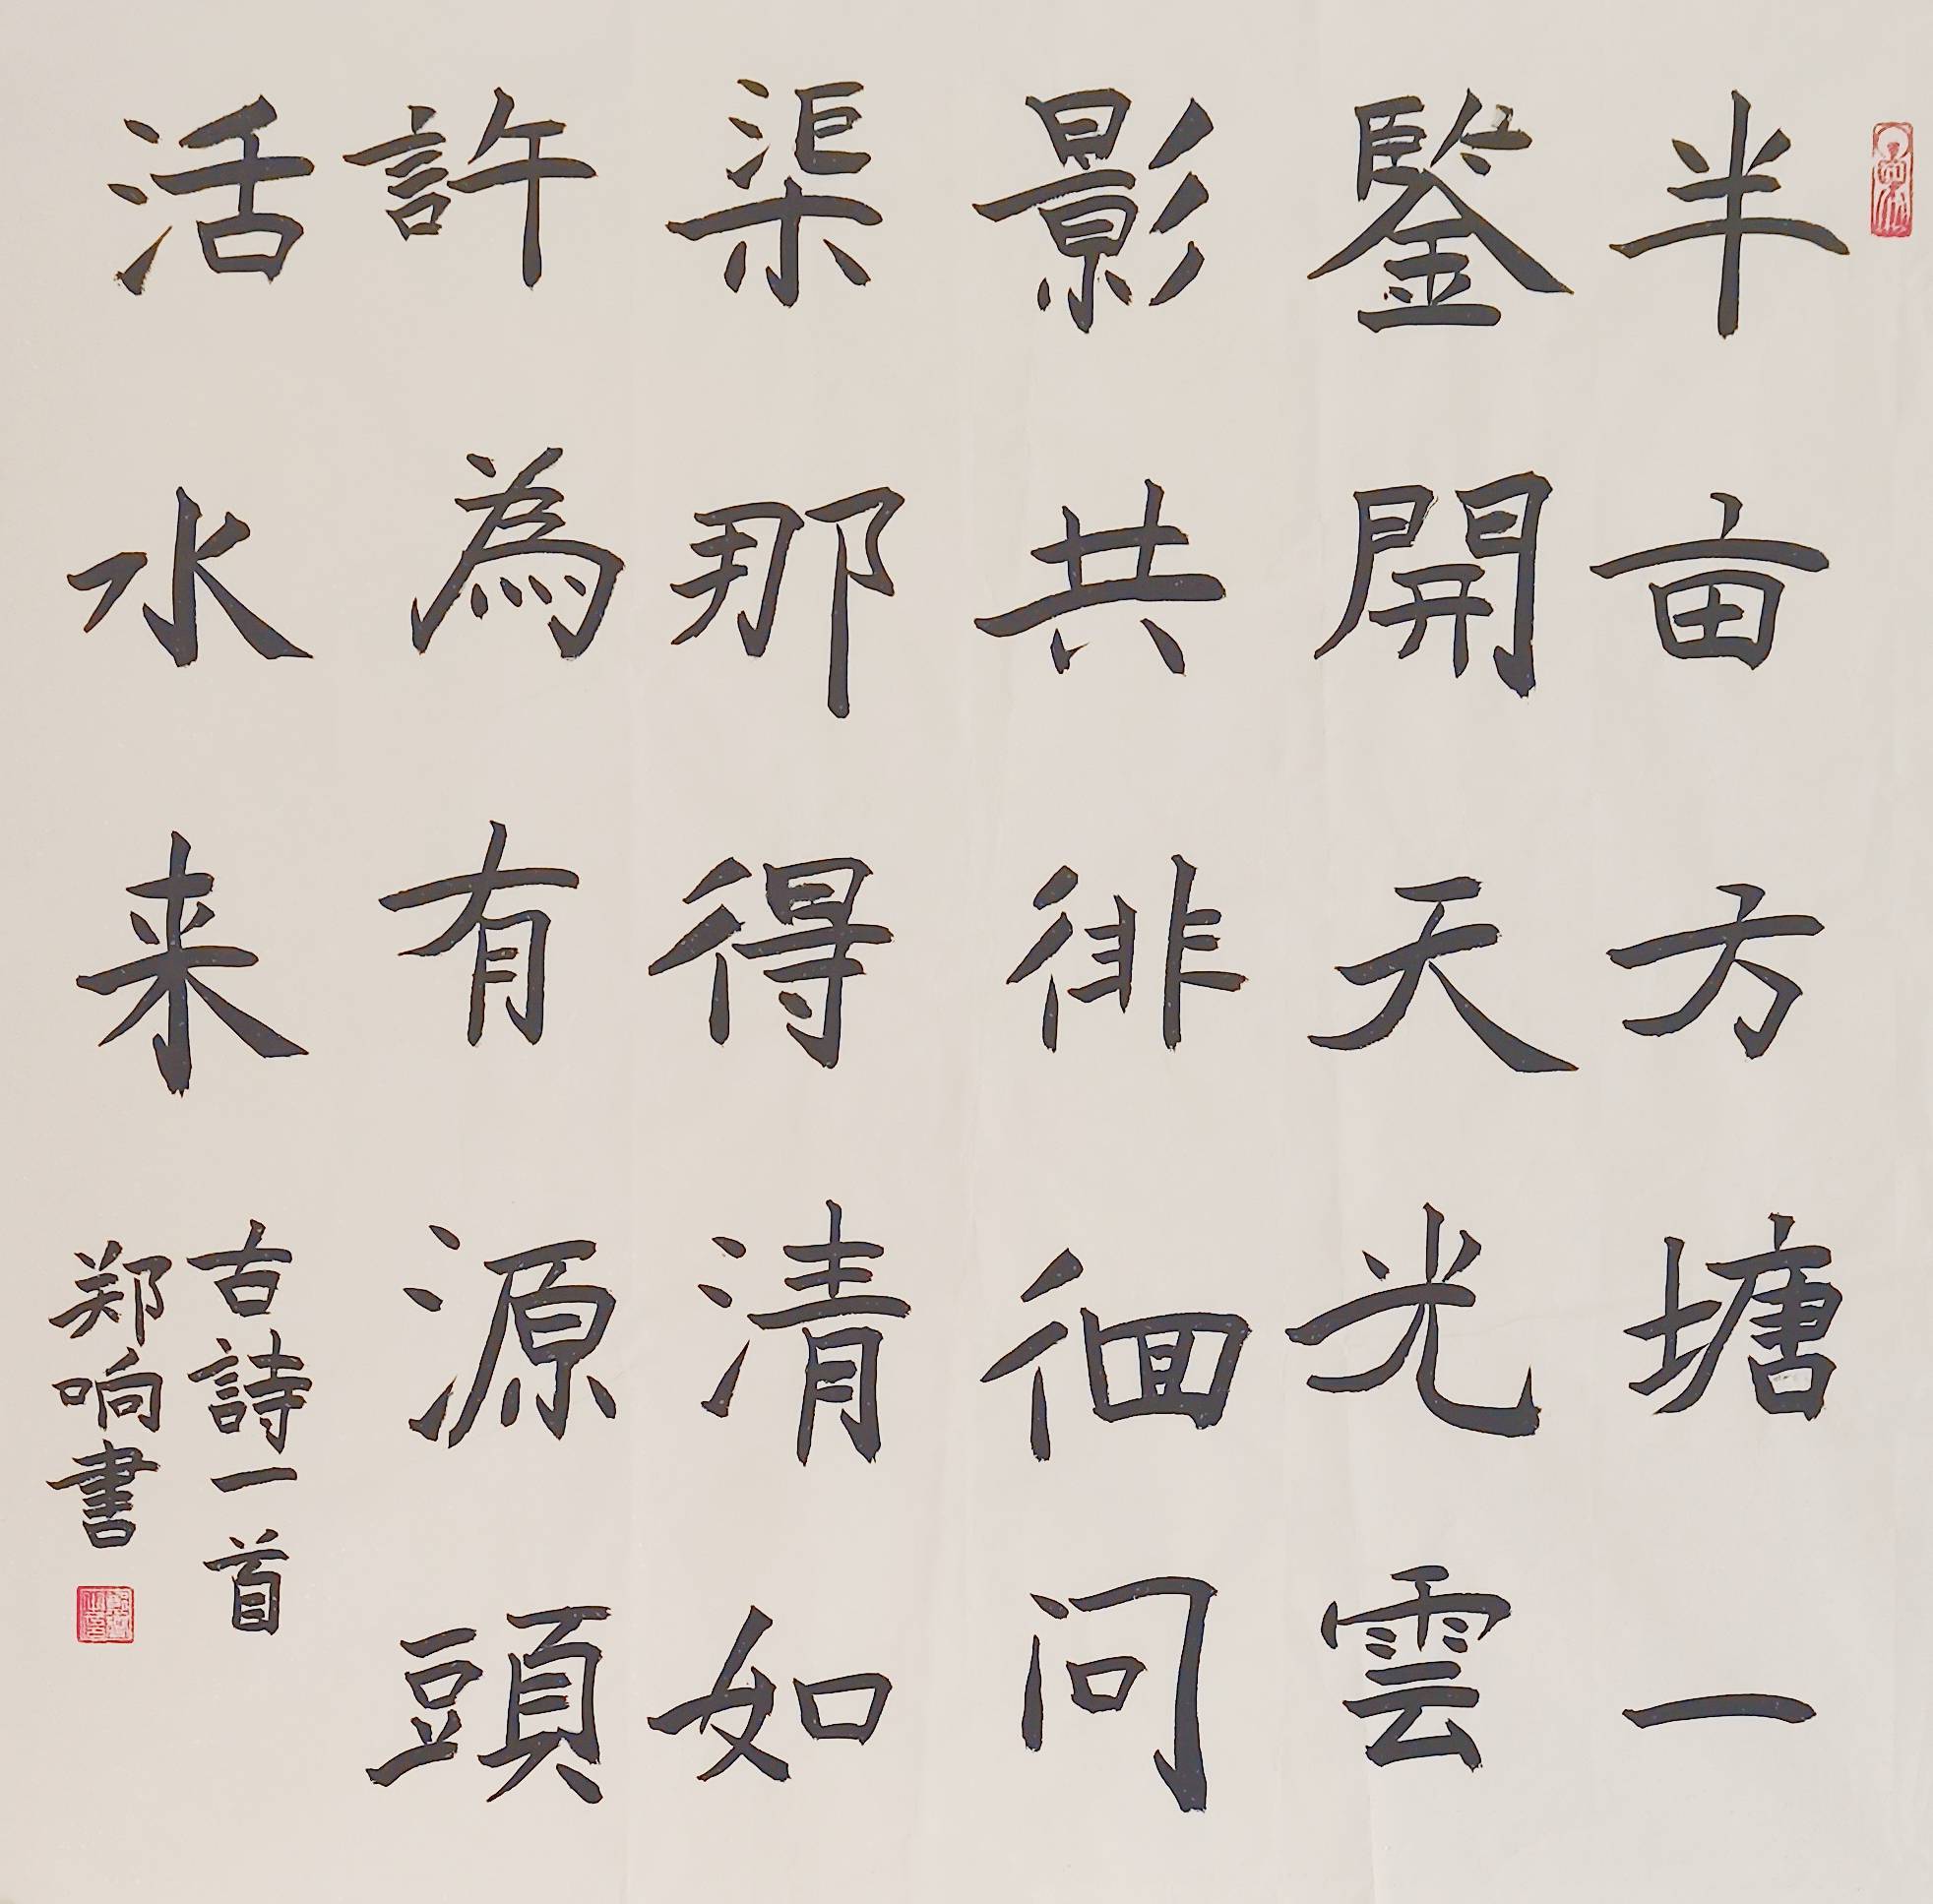 半亩方塘一
鑒開天光雲
影共徘徊问
渠那得清如
許為有源頭
活水来
古詩一首
郑响書